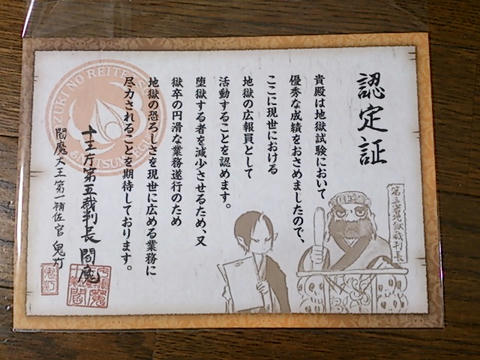 認定証
貴殿は地獄試験において
優秀な成績をおさめましたので、
ここに現世における
地獄の広報員として
活動することを認めます。
堕獄する者を減少させるため、又
獄卒の円滑な業務遂行のため
地獄の恐ろしさを現世に広める業務に
尽力されることを期待しております。
十三庁第五裁判長 閻魔
閻魔大王第一補佐官 鬼灯
HOZUKI NO REITETSU